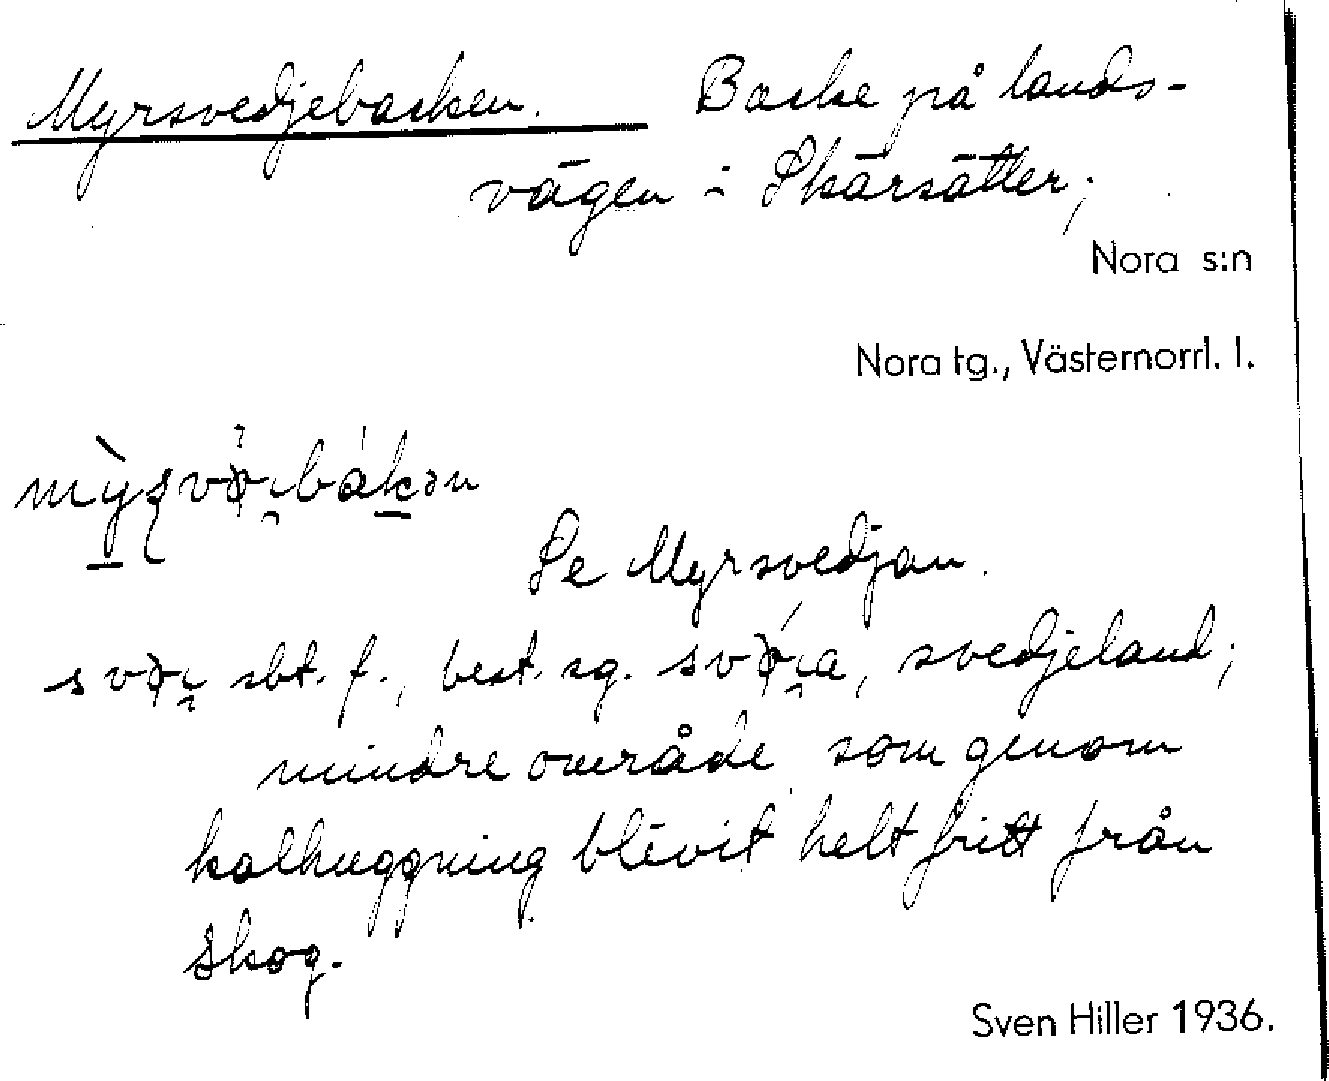 Myrsvedjebacken. Backe på lands-
vägen i Skärsätter;
Nora s:n
Nora tg., Västernorrl. l.
Se Myrsvedjan.
sbt. f., best. sg. svedjeland;
mindre område som genom
kalhuggning blevit helt fritt från
skog.
Sven Hiller 1936.